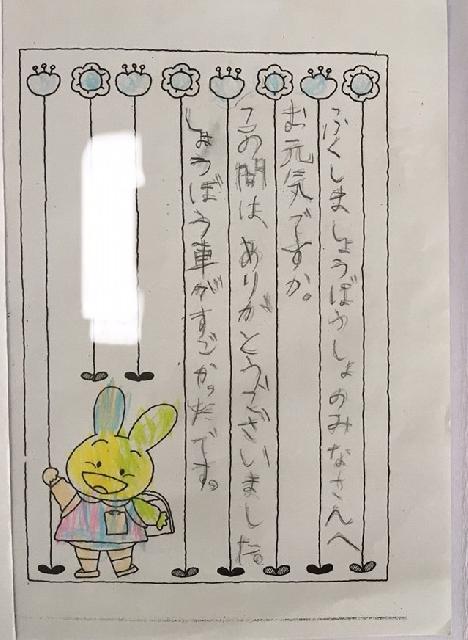 ふくしましょうぼうしょのみなさんへ
お元気ですか。
この間は、ありがとうございました。
しょうぼう車がすごかったです。